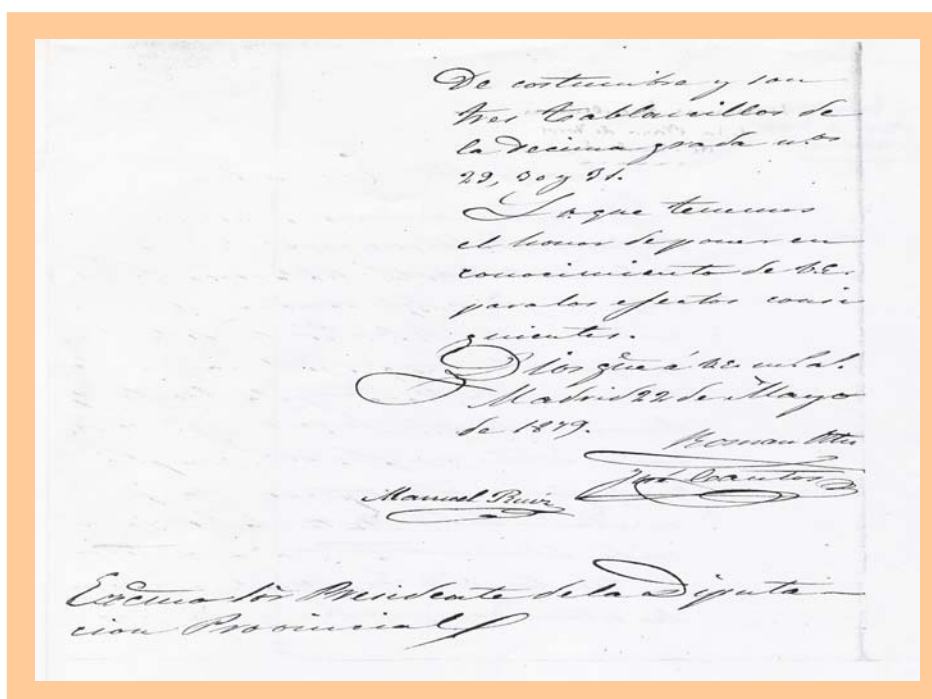 De costumbre y son
tres tabloncillos de
la decima grada n.os
29, 30 y 31.
Lo que tenemos
el honor de poner en
conocimiento de V.E.
para los efectos consi
guientes.
Dios gũe á V.E. m.s a.s
Madrid 22 de Mayo
de 1879.
Roman
José Santos
Manuel Ruiz
Excmo Sõr Presidente de la Diputa-
cion Provincial